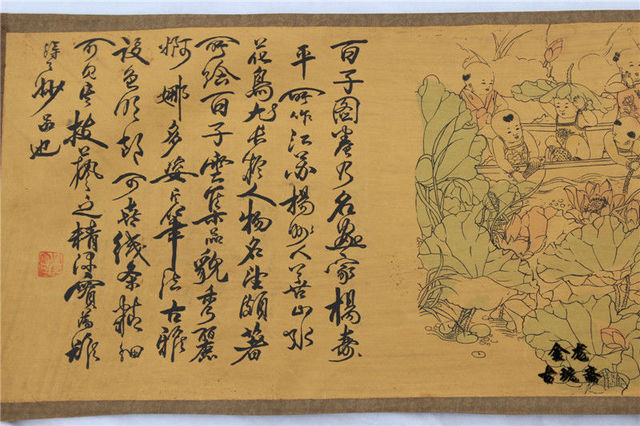 百子图卷乃名画家杨寿
平所作江苏扬州人善山水
花鸟尤长于人物名望颇著
所绘百子云集品貌秀丽
婀娜多姿笔法古雅
设色明朗可喜线条精细
可见其技艺之精深实为难
得之妙品也
金龙
古玩斋